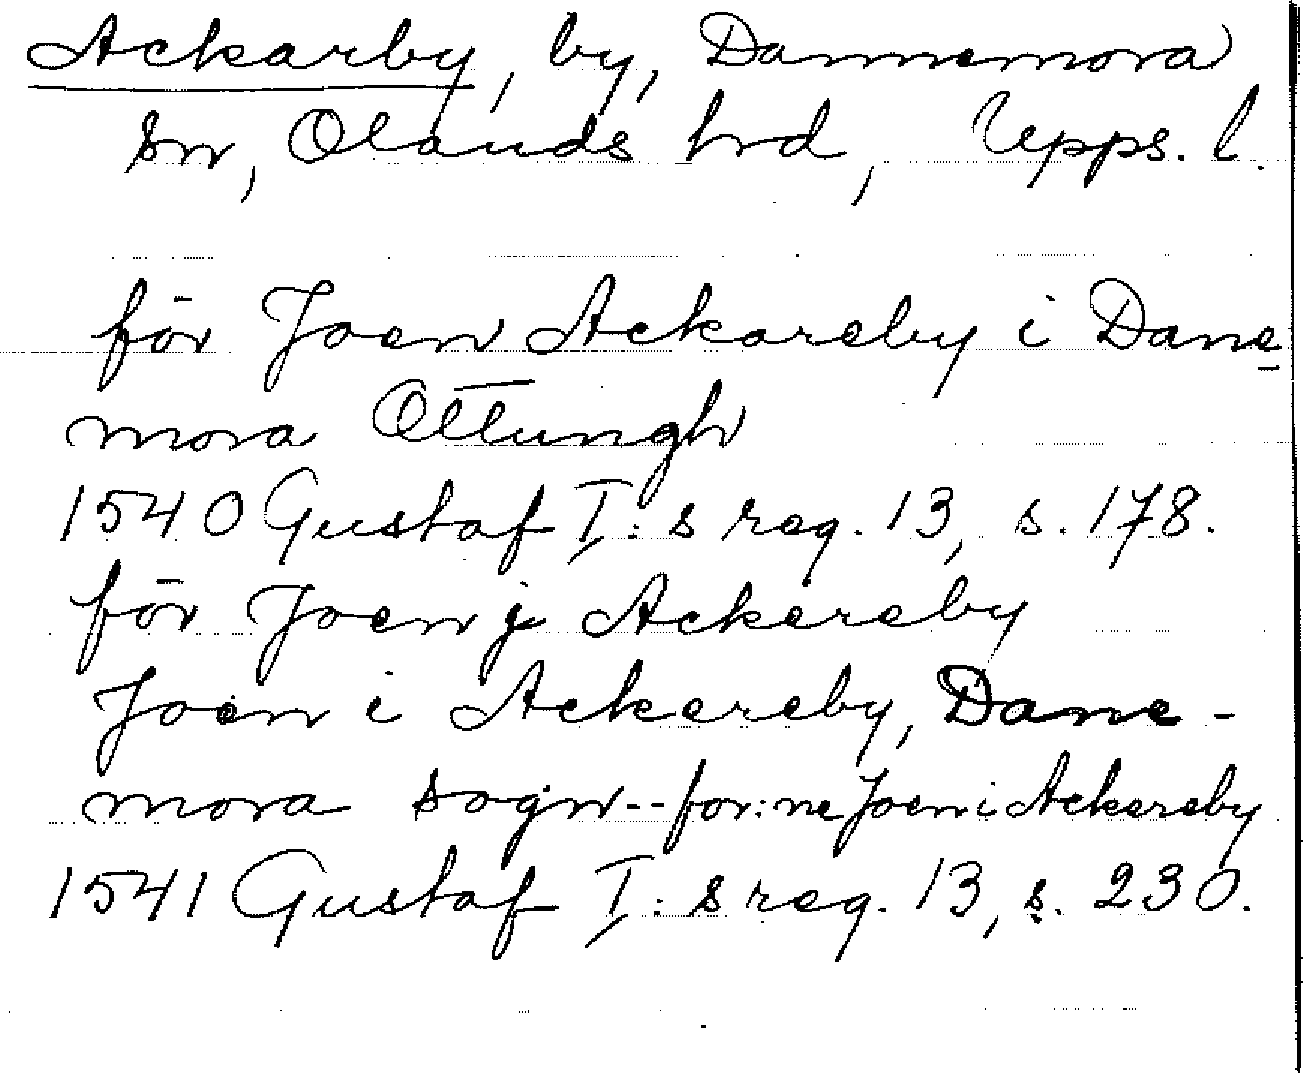 Ackarby, by, Dannemora
sn, Olands hrd, Upps. l.
för Joen Ackareby i Dane
mora Ottungh
1540 Gustaf I: s reg. 13, s. 178.
för Joen j Ackereby
Joen i Ackereby, Dane-
mora sogn--for:ne Joen i Ackereby
1541 Gustaf I: s reg. 13, s. 230.